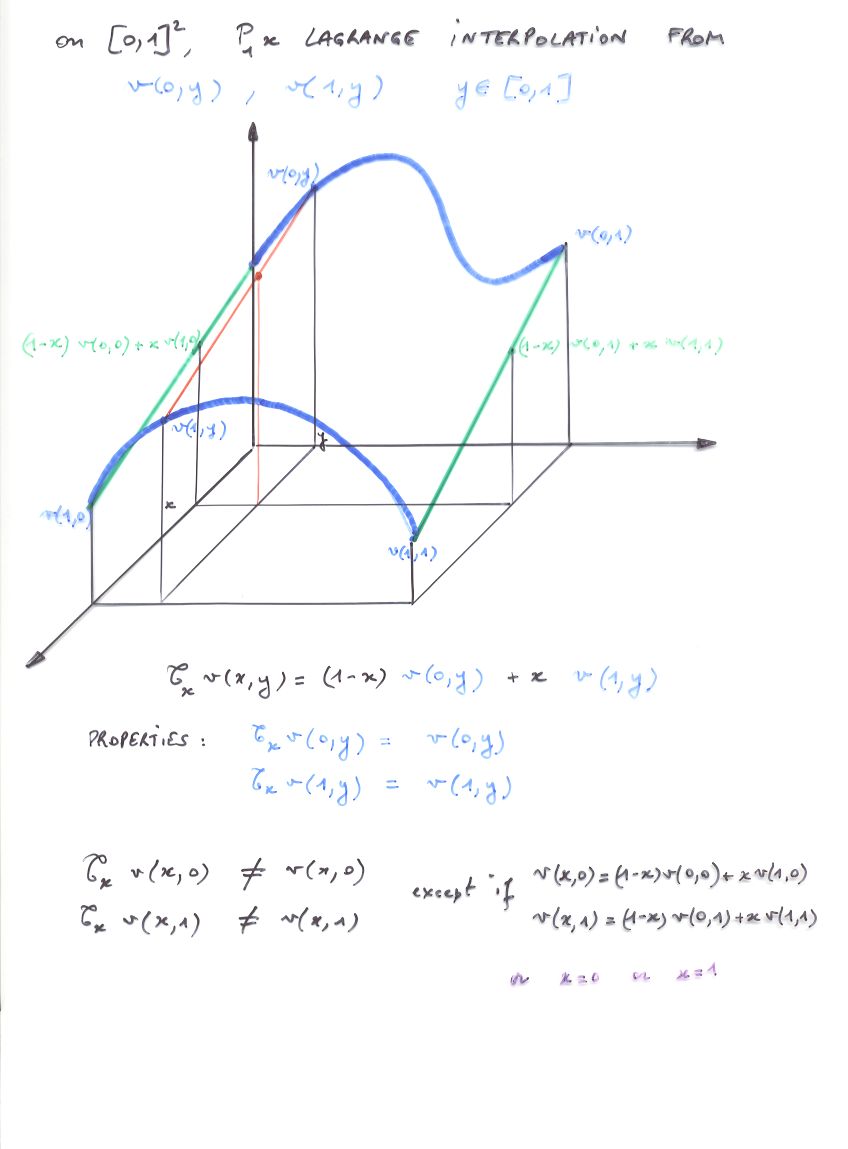 on [0,1]², P₁ x LAGRANGE INTERPOLATION FROM
v(0,y) , v(1,y) y ∈ [0,1]
v(0,y)
v(0,1)
(1-x) v(0,0) + x v(1,0)
(1-x) v(0,1) + x v(1,1)
v(1,y)
y
x
v(1,0)
v(1,1)
𝒯ₓ v(x,y) = (1-x) v(0,y) + x v(1,y)
PROPERTIES : 𝒯ₓ v(0,y) = v(0,y)
𝒯ₓ v(1,y) = v(1,y)
𝒯ₓ v(x,0) ≠ v(x,0) except if v(x,0) = (1-x) v(0,0) + x v(1,0)
𝒯ₓ v(x,1) ≠ v(x,1) v(x,1) = (1-x) v(0,1) + x v(1,1)
or x=0 or x=1